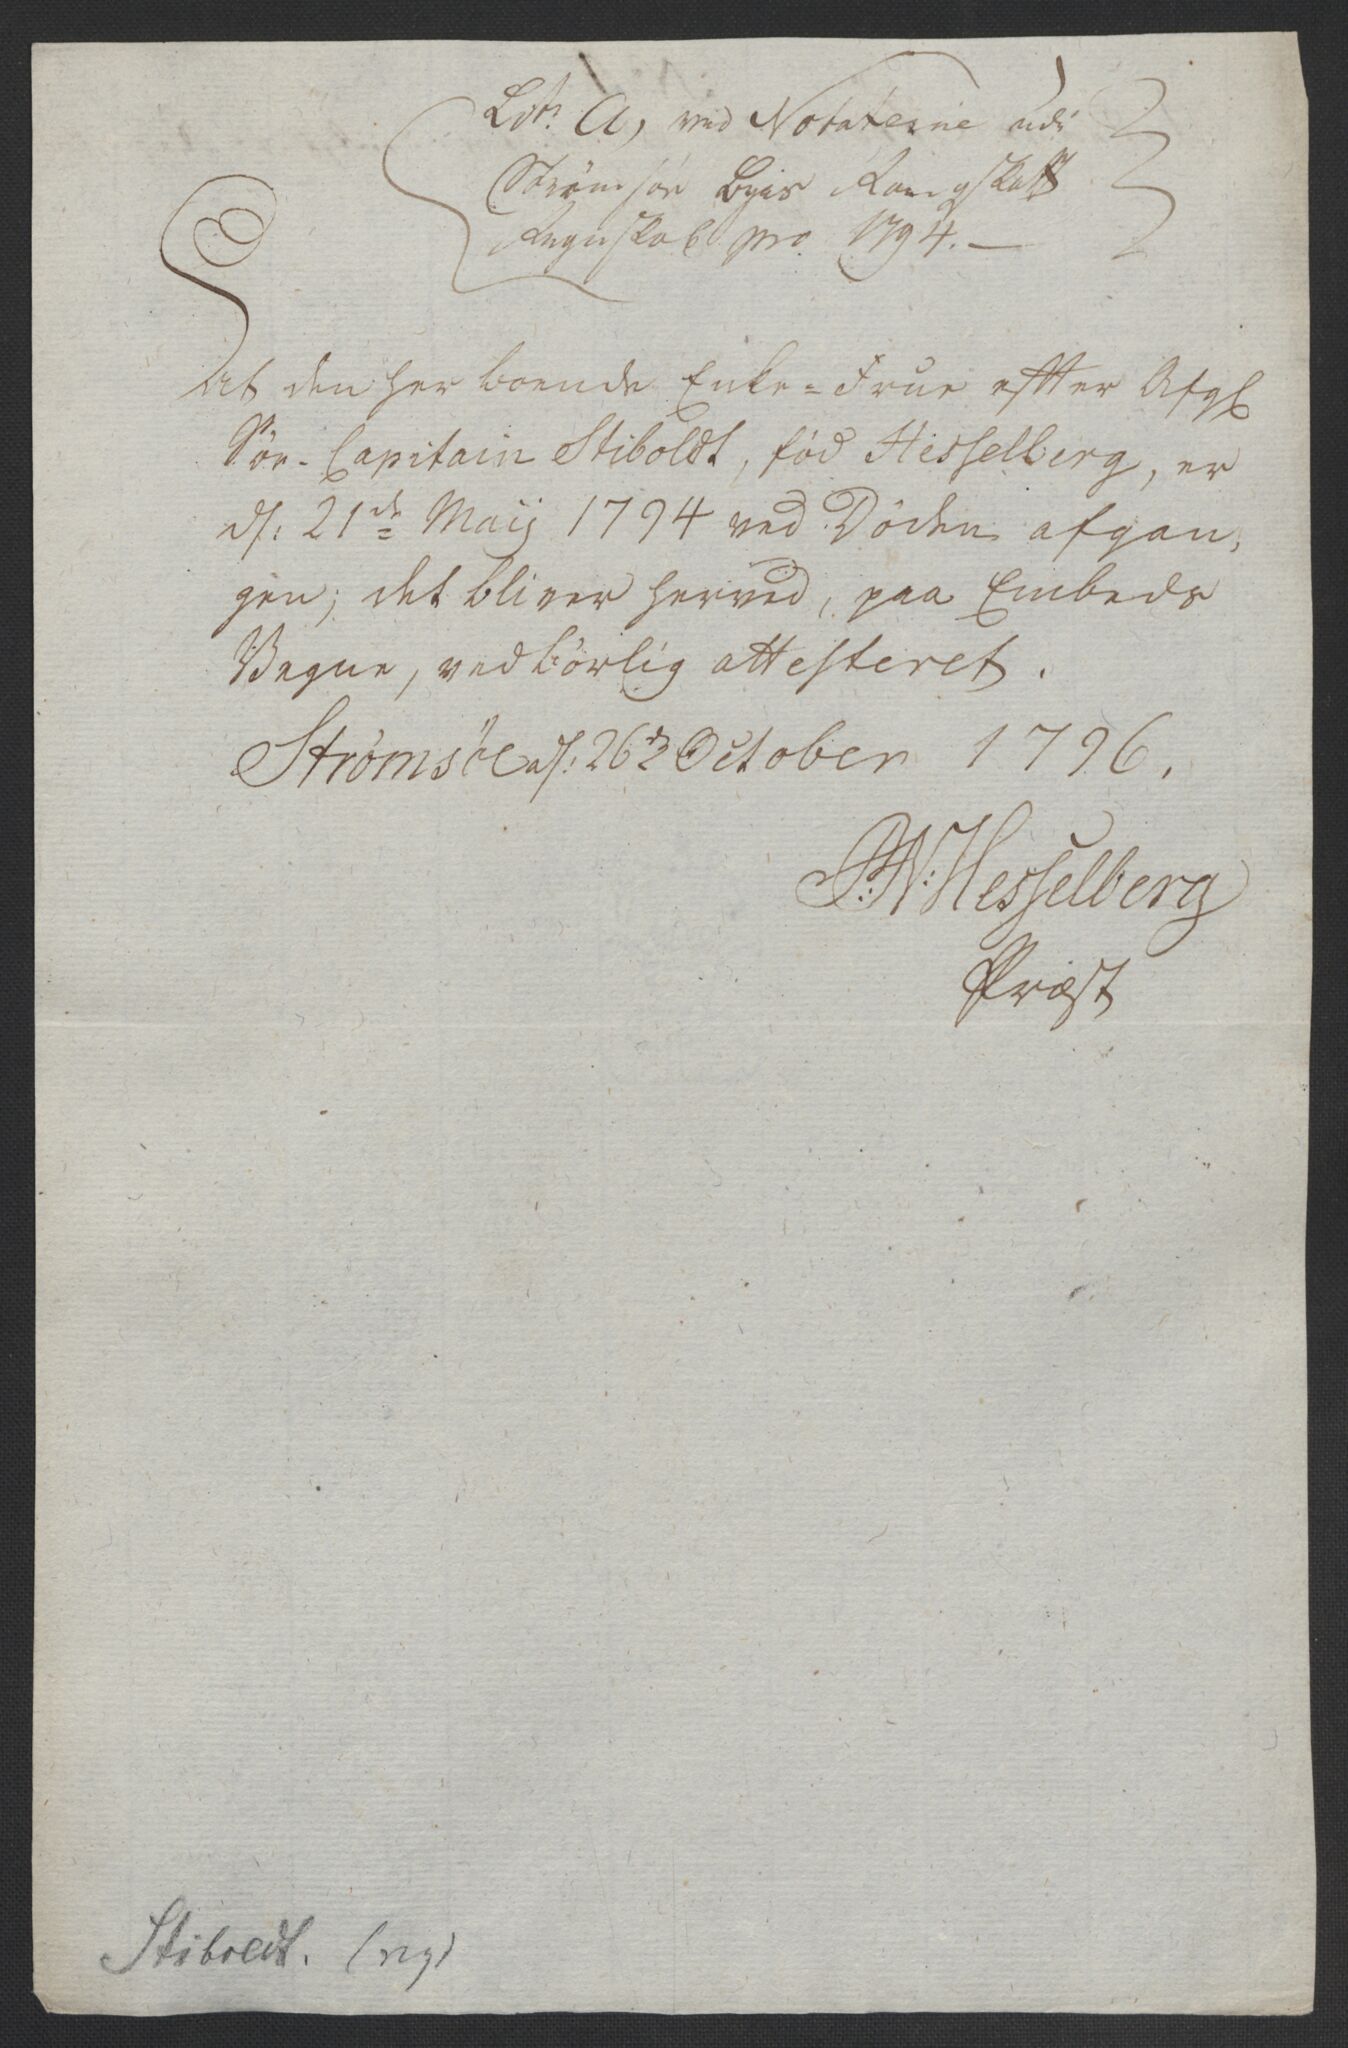 Litr: A, ved Notaterne udi
Strømsøe Byes Rangskatt
Regnskab pro 1794.—
At den her boende Enke=Frue efter Afgl
Søe-Capitain Stiboldt, fød Hesselberg, er
d: 21de Maij 1794 ved Døden afgan,
gen; det bliver herved, paa Embeds
Vegne, vedbørlig attesteret.
Strømsöe d: 26de October 1796.
P: W: Hesselberg
Præst
Stiboldt. (ng)